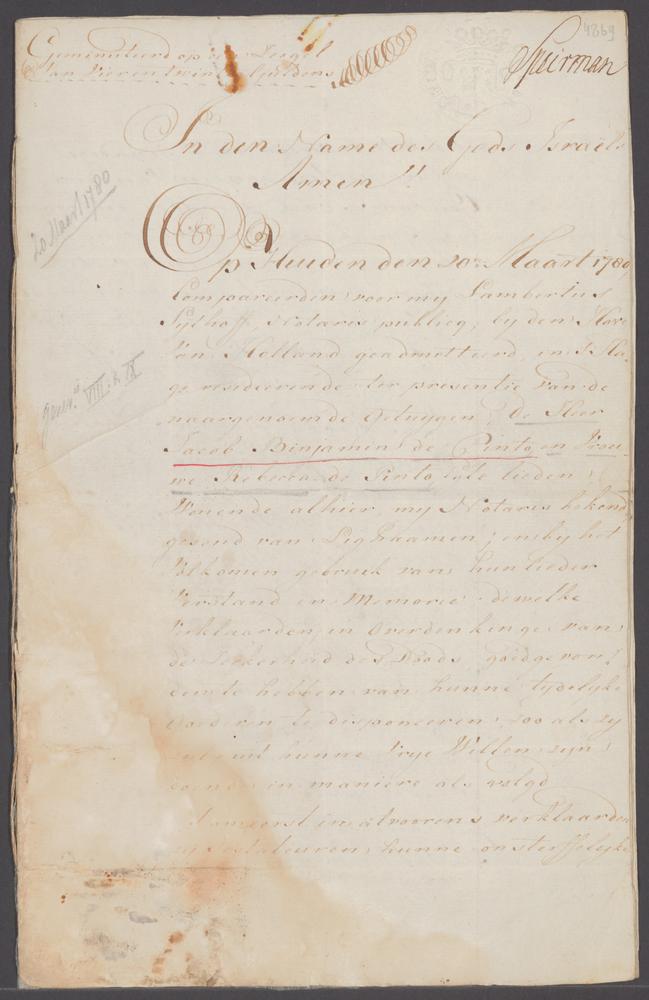 4869
Geminuteerd op een Zeegel
van vier en twintig guldens
Speirman
In den Name des Gods Israëls
Amen!!
20 Maart 1780
Op Huiden den 20e Maart 1780
Compareerden voor my Lambertus
Sythoff, Notaris publicq, by den Hove
van Holland geadmitteerd, in 's Ha-
ge resideerende ter presentie van de
naargenoemde Getuygen, de Heer
VIII & IX
Jacob Binjamin de Pinto en Vrou-
we Rebecca de Pinto Egte lieden,
Wonende alhier, my Notaris bekend
gesond van Lighaamen, en by het
Volkomen gebruik van hun lieder
Verstand en Memorie dewelke
verklaarden in Overdenkinge van
de Sekerheid des Doods, goedgevon-
den te hebben van hunne tydelyke
Goederen te disponeeren, zoo als zy
uit hunne Vrye Willen zyn
doende in maniere als volgd
in alvoorens verklaarden
Testateuren, hunne onsterffelyke